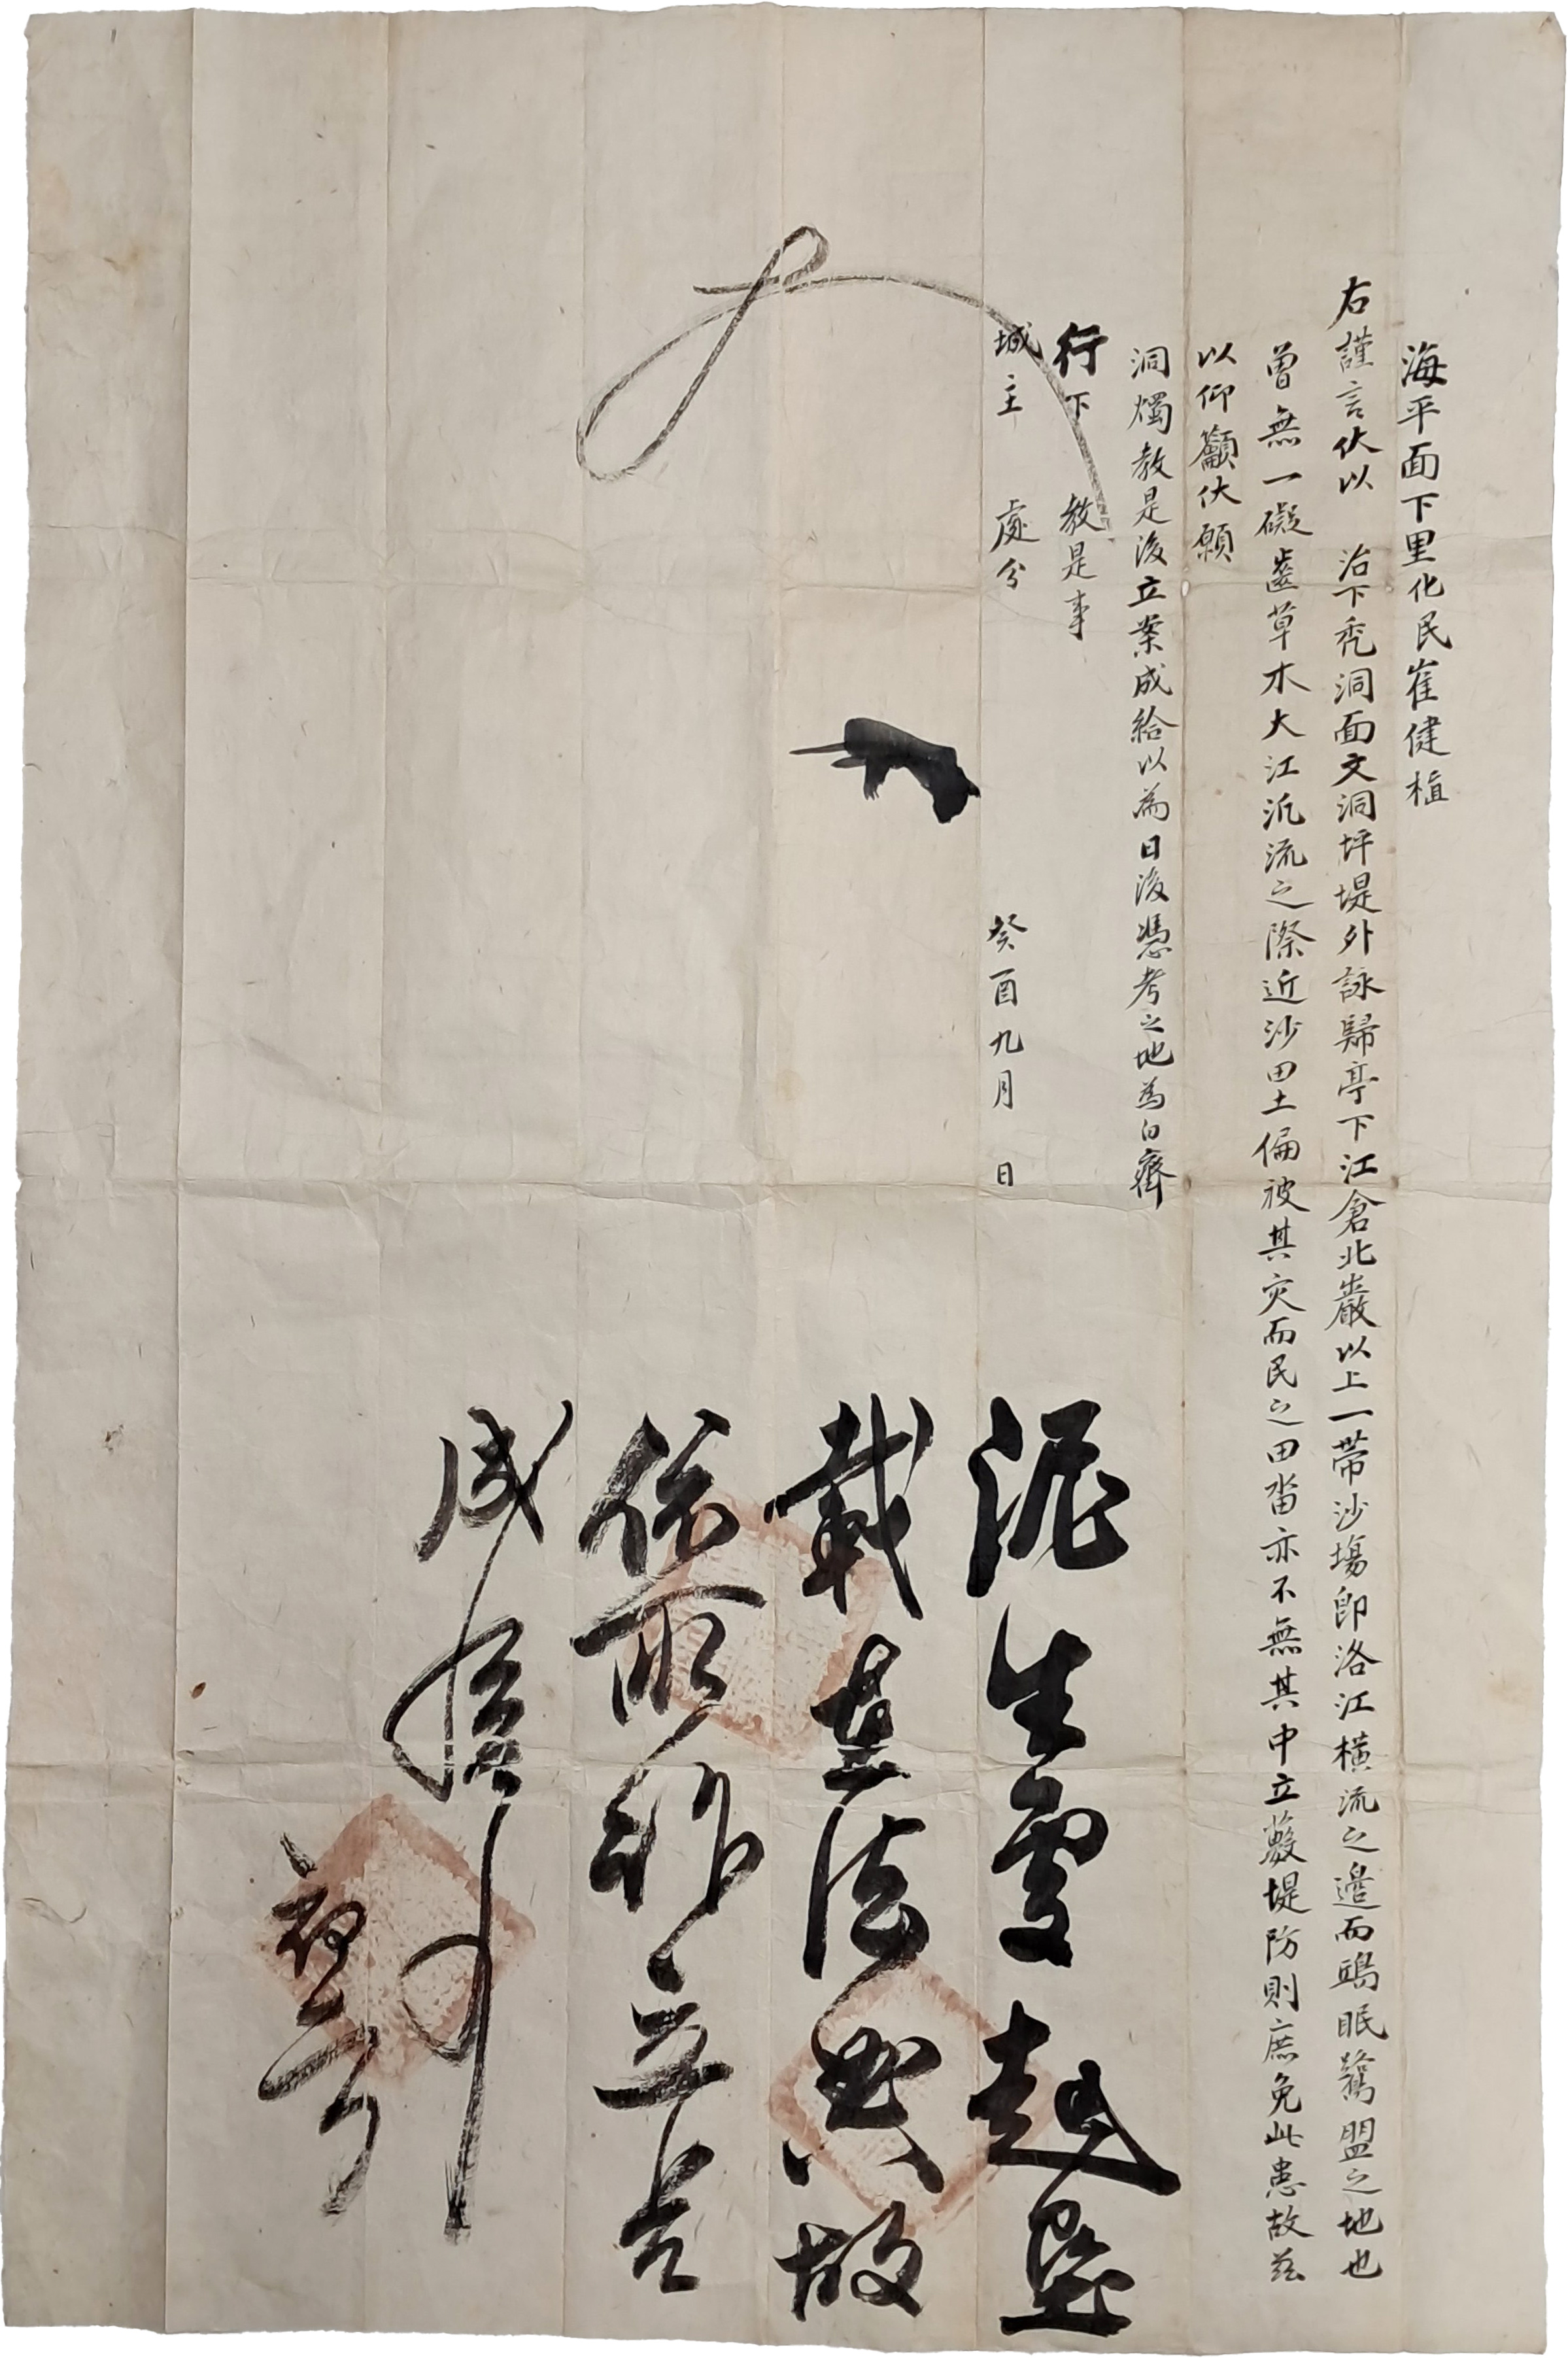 海平面下里化民崔健植
右謹言伏以 治下禿洞面文洞坪堤外詠歸亭下江倉北巖以上一帶沙場卽洛江橫流之邊而鷗眠鷺盟之地也
曾無一礙齒草木大江汎流之際近沙田土偏被其灾而民之田畓亦不無其中立藪堤防則庶免此患故玆
以仰籲伏願
洞燭教是後立案成給以為日後憑考之地為白齊
行下 教是事
城主 處分
癸酉九月 日
泥生處起墾
載在法典故
依所訴立旨
成給向事